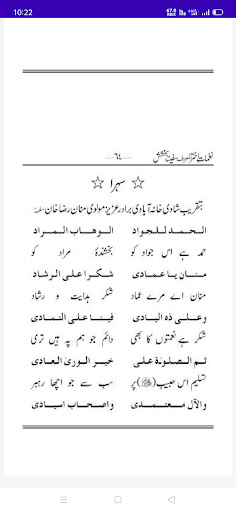 10:22
نغمات اختر المعروف سفینۂ بخشش ۶۴
☆ سہرا ☆
بتقریب شادی خانہ آبادی برادر عزیز مولوی منان رضا خان سلمہ
الحمد للجواد الوهاب المراد
حمد ہے اس جواد کو بخشندۂ مراد کو
منان یا عمادی شکرا علی الرشاد
منان اے مرے عماد شکر ہدایت و رشاد
وعلی ذہ الیادی فینا علی التمادی
شکر ہے نعمتوں کا بھی دائم جو ہم پہ ہیں تری
ثم الصلوٰۃ علی خیر الوریٰ العادی
تسلیم اس حبیب(ﷺ) پر سب سے جو اچھا رہبر
والآل معتمدی واصحاب اسیادی